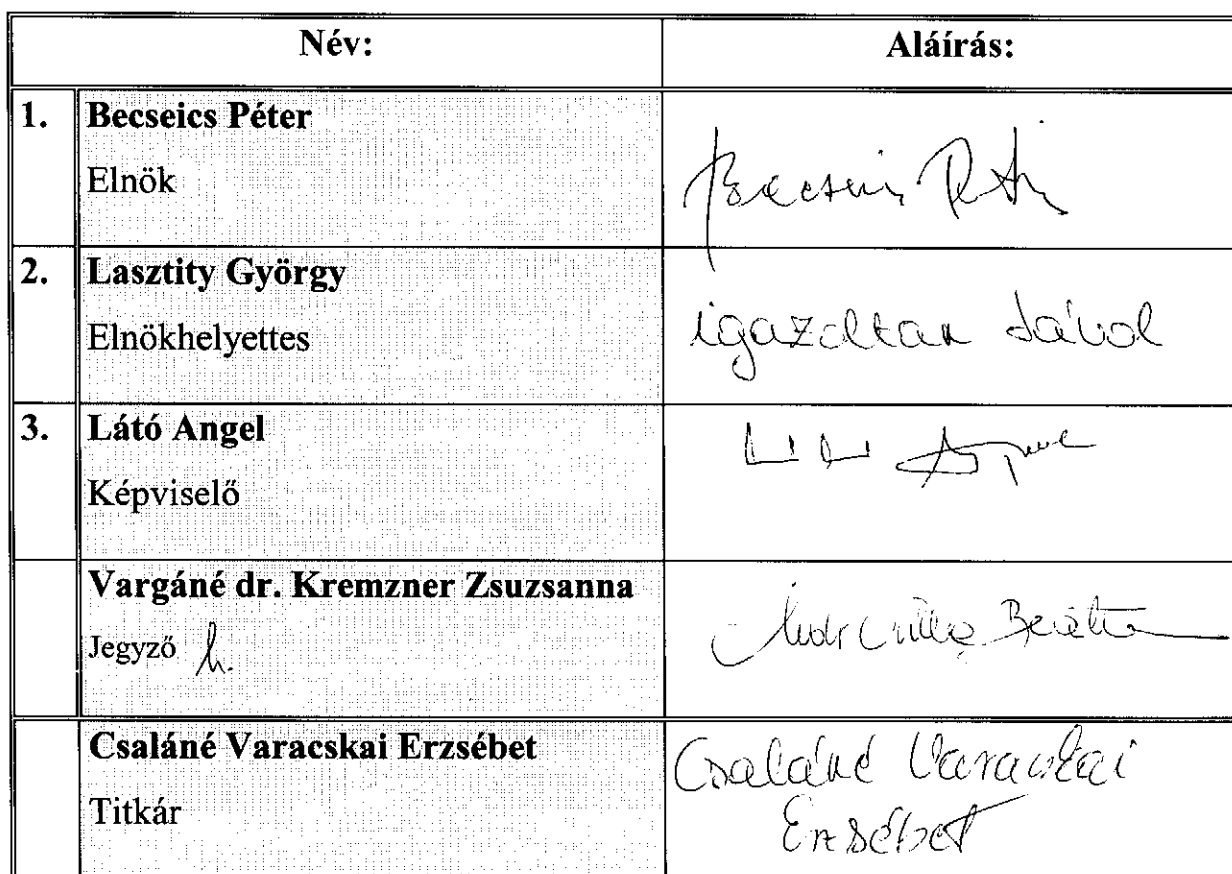 Név: Aláírás:
1. Becseics Péter
Elnök
Becseics Péter
2. Lasztity György
Elnökhelyettes
igazoltan távol
3. Látó Angel
Képviselő
Vargáné dr. Kremzner Zsuzsanna
Jegyző h.
Csaláné Varacskai Erzsébet
Titkár
Csaláné Varacskai
Erzsébet